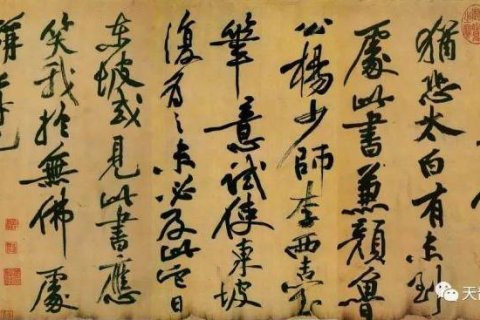 猶恐太白有未到
處此書兼顏魯
公楊少師李西臺
筆意試使東坡
復為之未必及此它日
東坡或見此書應
笑我於無佛處
稱尊也
天